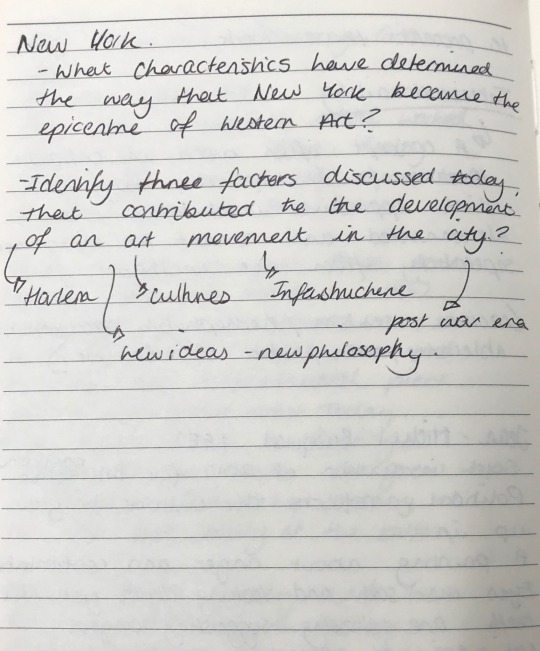 New York.
- What characteristics have determined
the way that New York became the
epicentre of Western Art?
- Identify three factors discussed today,
that contributed to the development
of an art movement in the city?
Harlem
cultures
Infastructure
post war era
new ideas - new philosophy.